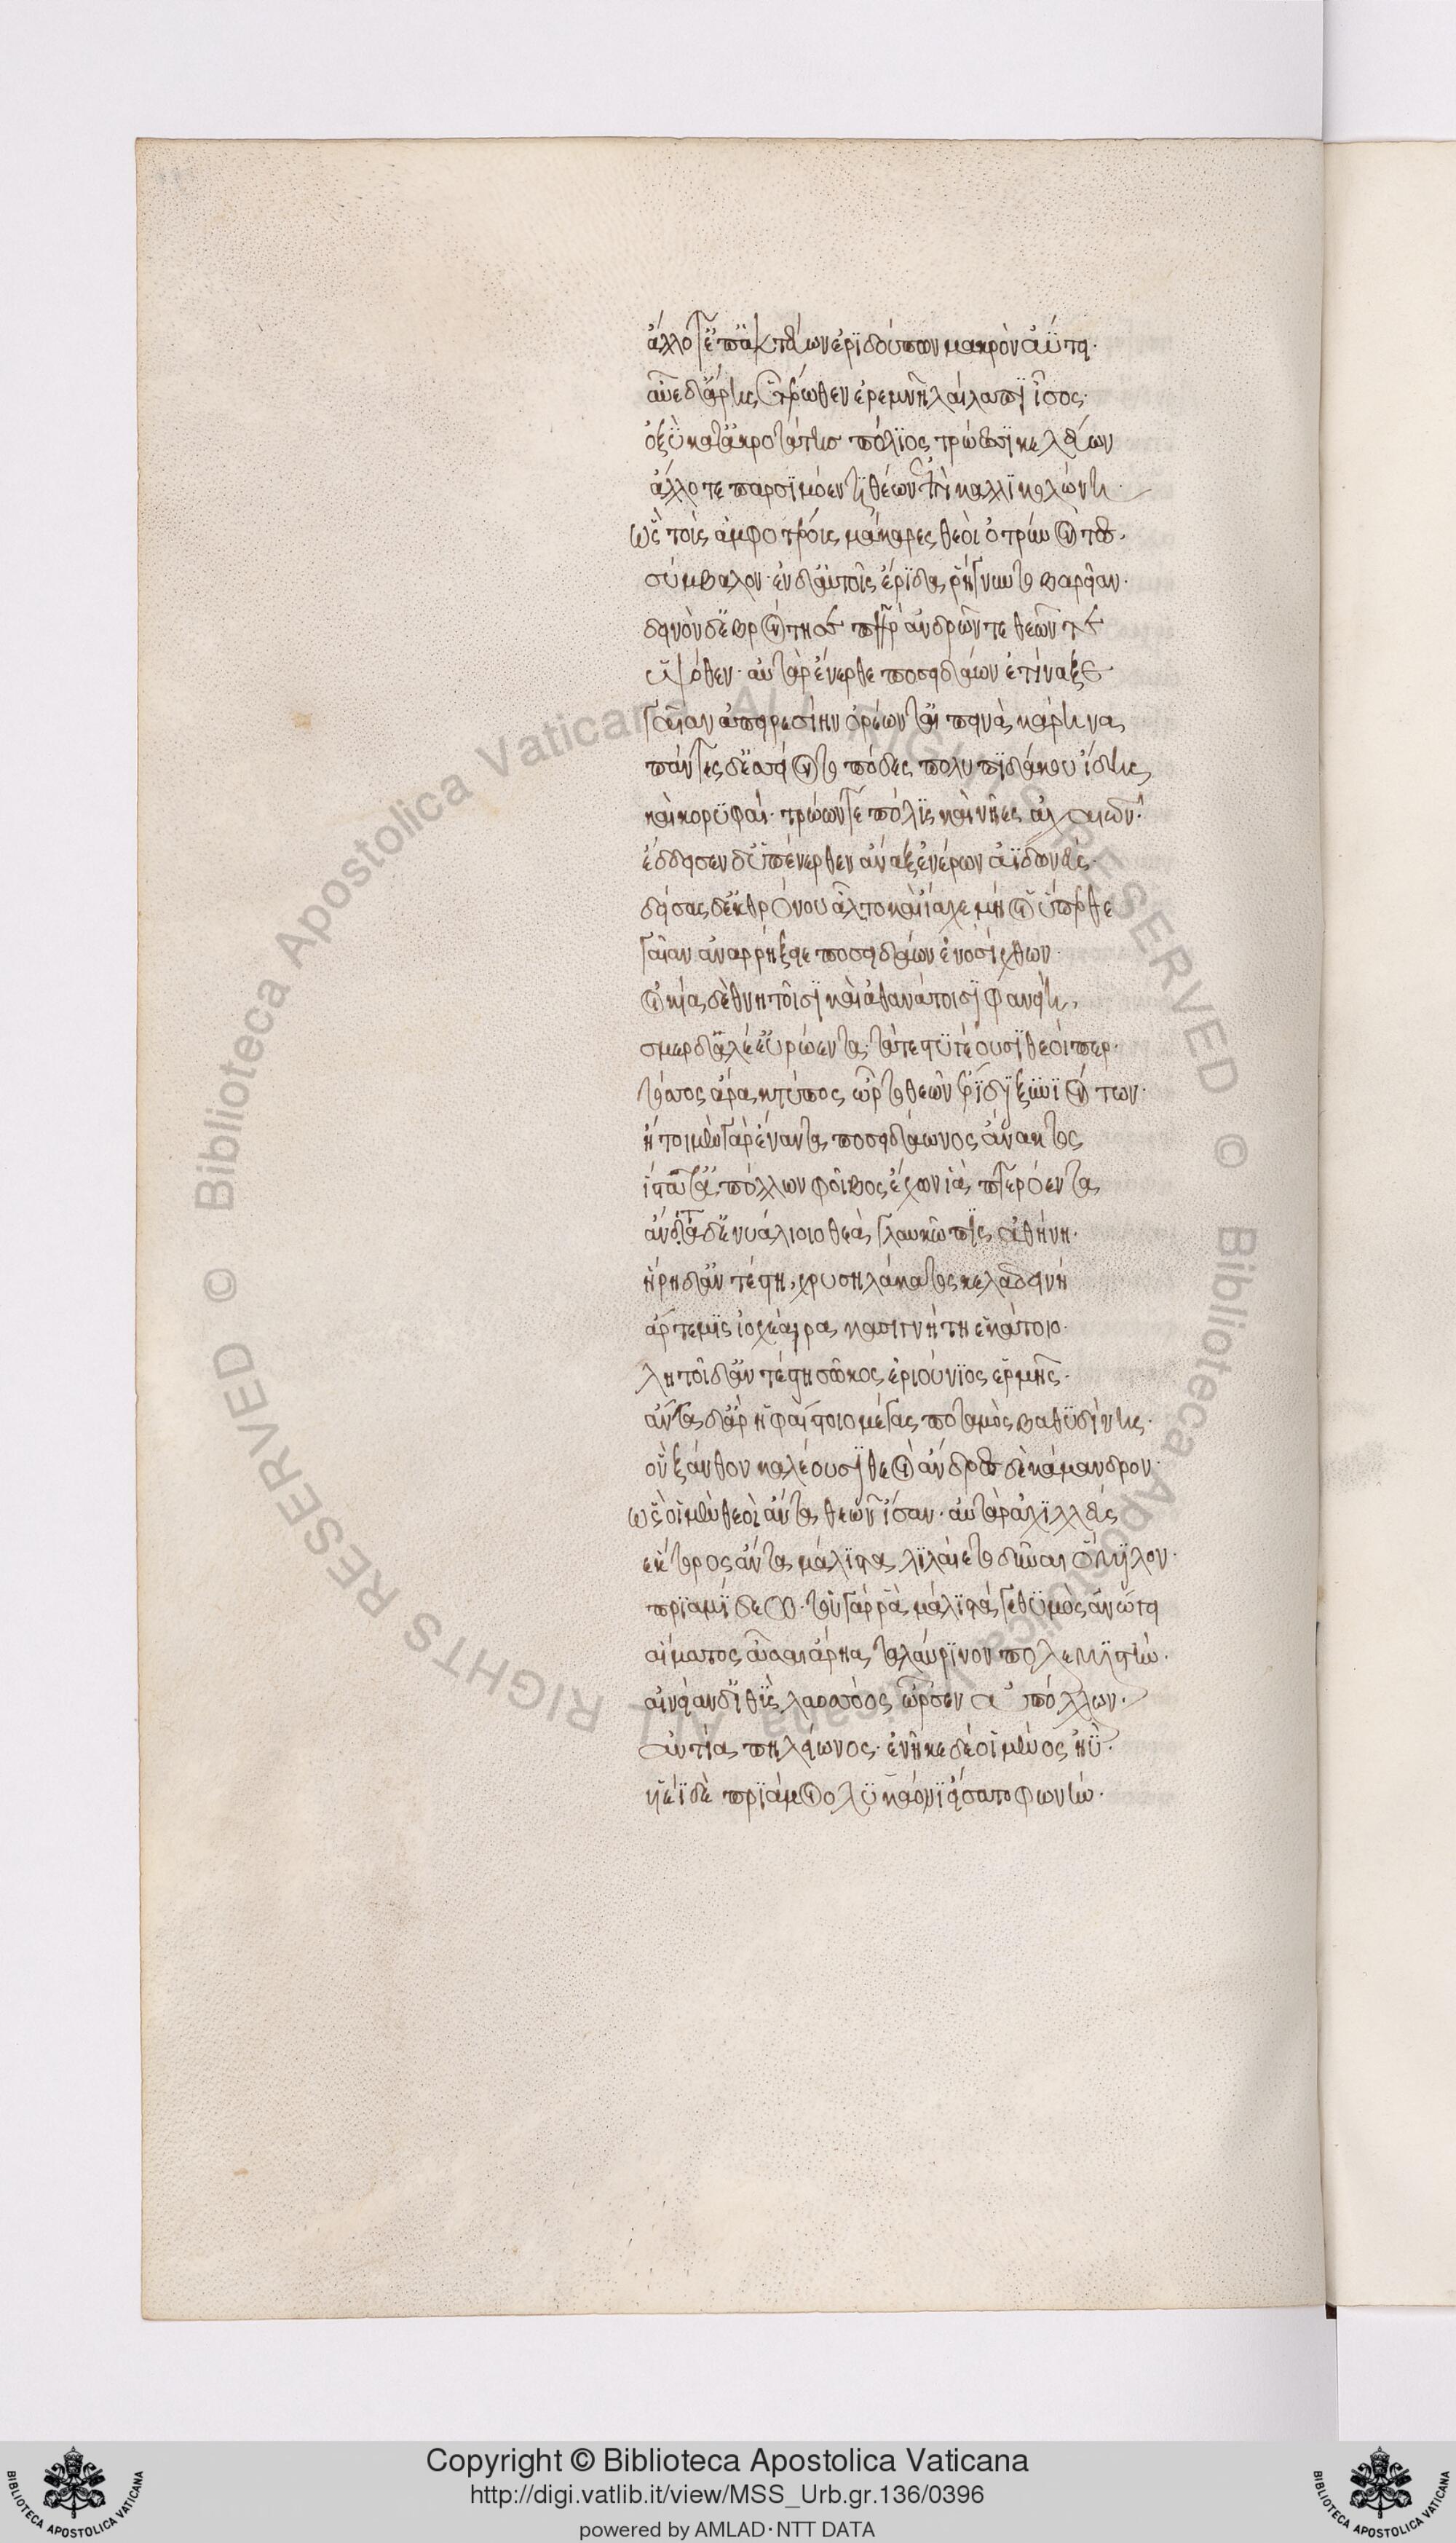 ἄλλοτ' ἐπ' ἀκτάων ἐριδούπων μακρὸν ἀΰτει·
αὖε δ' ἄρης ἑτέρωθεν ἐρεμνῇ λαίλαπι ἶσος·
ὀξὺ κατ' ἀκροτάτης πόλιος τρώεσσι κελεύων
ἄλλοτε παρ σιμόεντι θέων ἐπὶ καλλικολώνη·
ὣς τοὺς ἀμφοτέρους μάκαρες θεοὶ ὀτρύνοντες,
σύμβαλον· ἐν δ' αὐτοῖς ἔριδα ῥήγνυντο βαρεῖαν·
δεινὸν δὲ βρόντησε πατὴρ ἀνδρῶν τε θεῶν τε
ὑψόθεν· αὐτὰρ ἔνερθε ποσειδάων ἐτίναξε
γαῖαν ἀπειρεσίην ὀρέων τ' αἰπεινὰ κάρηνα
πάντες δ' ἐσσείοντο πόδες πολυπιδάκου ἴδης
καὶ κορυφαί· τρώων τε πόλις καὶ νῆες ἀχαιῶν·
ἔδδεισεν δ' ὑπένερθεν ἄναξ ἐνέρων ἀϊδωνεύς·
δείσας δ' ἐκ θρόνου ἆλτο καὶ ἴαχε μή οἱ ὕπερθε
γαῖαν ἀναρρήξειε ποσειδάων ἐνοσίχθων·
οἰκία δὲ θνητοῖσι καὶ ἀθανάτοισι φανείη,
σμερδαλέ' εὐρώεντα· τάτε στυγέουσι θεοί περ·
τόσσος ἄρα κτύπος ὦρτο θεῶν ἔριδι ξυνιόντων·
ἤτοι μὲν γὰρ ἔναντα ποσειδάωνος ἄνακτος
ἵστατ' ἀπόλλων φοῖβος ἔχων ἰὰ πτερόεντα
ἄντα δ' ἐνυαλίοιο θεὰ γλαυκῶπις ἀθήνη·
ἥρῃ δ' ἀντέστη, χρυσηλάκατος κελαδεινή
ἄρτεμις ἰοχέαιρα κασιγνήτη ἑκάτοιο·
λητοῖ δ' ἀντέστη σῶκος ἐριούνιος ἑρμῆς·
ἄντα δ' ἄρ' ἡφαίστοιο μέγας ποταμὸς βαθυδίνης·
ὃν ξάνθον καλέουσι θεοὶ ἄνδρες δὲ κάμανδρον·
ὣς οἱ μὲν θεοὶ ἄντα θεῶν ἴσαν· αὐτὰρ ἀχιλλεὺς
ἕκτορος ἄντα μάλιστα λιλαίετο δῦναι ὅμιλον·
πριαμίδεω· τοῦ γάρ ῥα μάλιστά γε θυμὸς ἀνώγει
αἵματος ἆσαι ἄρηα ταλαύρινον πολεμιστήν·
αἰνείαν δ' ἰθὺς λαοσσόος ὦρσεν ἀπόλλων·
ἀντία πηλείωνος· ἐνῆκε δέ οἱ μένος ἠΰ·
υἱέϊ δὲ πριάμοιο λυκάονι εἴσατο φωνήν·
Copyright © Biblioteca Apostolica Vaticana
http://digi.vatlib.it/view/MSS_Urb.gr.136/0396
powered by AMLAD·NTT DATA